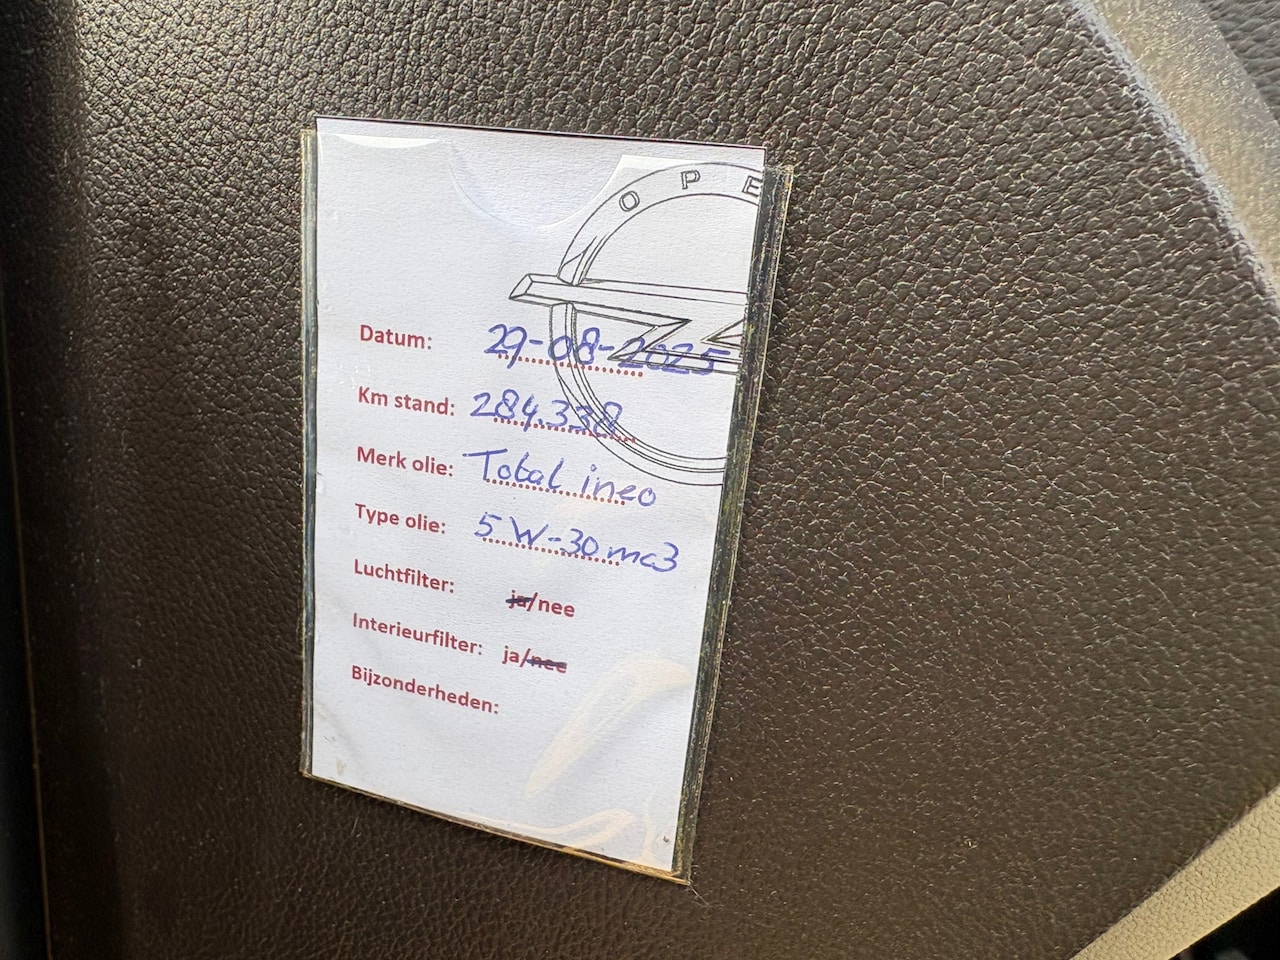 OPE
Datum: 29-08-2025
Km stand: 284.338
Merk olie: Total ineo
Type olie: 5W-30 mc3
Luchtfilter: ja/nee
Interieurfilter: ja/nee
Bijzonderheden: